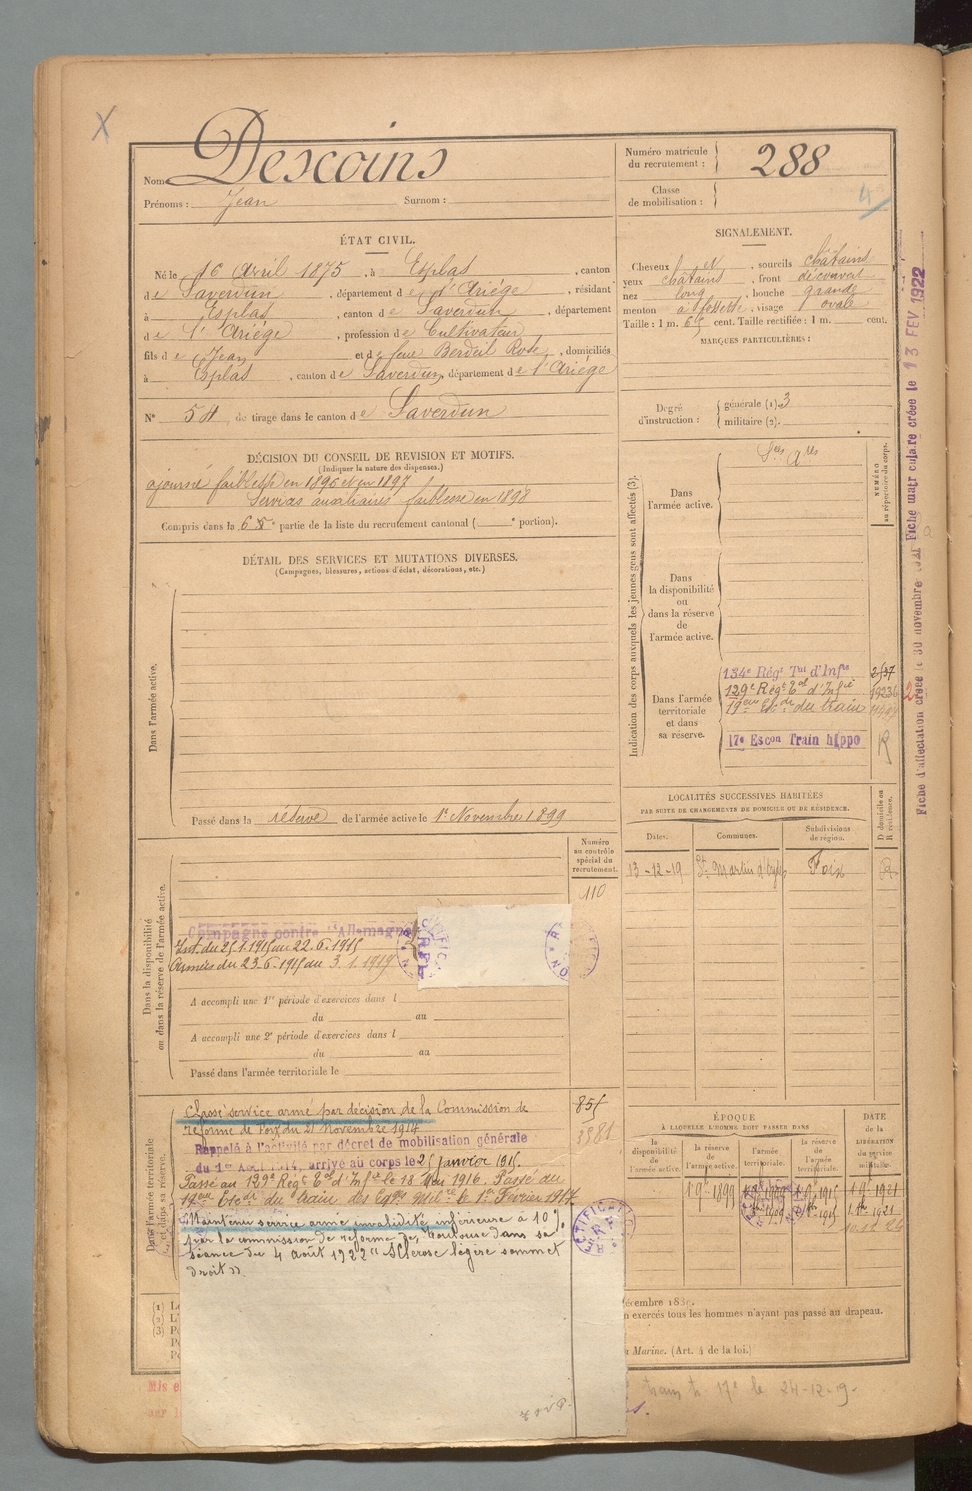 Nom Descoins
Prénoms : Jean Surnom :
Numéro matricule du recrutement : 288
Classe de mobilisation :
ÉTAT CIVIL.
Né le 16 Avril 1875, à Esplas, canton
de Saverdun, département de l'Ariége, résidant
à Esplas, canton de Saverdun, département
de l'Ariége, profession de Cultivateur
fils de Jean et de feue Berdeil Rose, domiciliés
à Esplas, canton de Saverdun, département de l'Ariége
N° 54 de tirage dans le canton de Saverdun
SIGNALEMENT.
Cheveux et sourcils châtains
yeux châtains, front découvert
nez long, bouche grande
menton à fossette, visage ovale
Taille : 1 m. 65 cent. Taille rectifiée : 1 m. cent.
MARQUES PARTICULIÈRES :
Degré d'instruction : générale (1) 3
militaire (2).
DÉCISION DU CONSEIL DE REVISION ET MOTIFS.
(Indiquer la nature des dispenses.)
ajourné faiblesse en 1896 et en 1897
Services auxiliaires faiblesse en 1898
Compris dans la 6e partie de la liste du recrutement cantonal ( e portion).
DÉTAIL DES SERVICES ET MUTATIONS DIVERSES.
(Campagnes, blessures, actions d'éclat, décorations, etc.)
Dans l'armée active.
Passé dans la réserve de l'armée active le 1er Novembre 1899
Indication des corps auxquels les jeunes gens sont affectés (3).
NUMÉRO au répertoire du corps.
Dans l'armée active.
Sces Ares
Dans la disponibilité ou dans la réserve de l'armée active.
Dans l'armée territoriale et dans sa réserve.
134e Régt Tal d'Infie
129e Régt Tal d'Infie
19eme Eon du train
17e Escon Train hippo
R
LOCALITÉS SUCCESSIVES HABITÉES
PAR SUITE DE CHANGEMENTS DE DOMICILE OU DE RÉSIDENCE.
Dates. Communes. Subdivisions de région. D domicile ou R résidence.
13-12-19 St Martin d'Oydes Foix R
Dans la disponibilité ou dans la réserve de l'armée active.
Numéro au contrôle spécial du recrutement.
110
Campagne contre l'Allemagne
Int. du 25.1.1915 au 22.6.1915
Armées du 23.6.1915 au 3.1.1919
A accompli une 1re période d'exercices dans l
du au
A accompli une 2e période d'exercices dans l
du au
Passé dans l'armée territoriale le
Dans l'armée territoriale et dans sa réserve.
Classé service armé par décision de la Commission de
réforme de Foix du 21 Novembre 1914
Rappelé à l'activité par décret de mobilisation générale
du 1er Août 1914, arrivé au corps le 25 Janvier 1915.
Passé au 129e Régt Tal d'Infie le 18 Mai 1916. Passé au
19eme Eon du train des Eqges Mil.res le 1er Février 1917
855
3381
Maintenu service armé invalidité inférieure à 10 %
par la commission de réforme de Toulouse dans sa
séance du 4 Août 1922 "Sclérose légère sommet
droit".
ÉPOQUE
À LAQUELLE L'HOMME DOIT PASSER DANS
la disponibilité de l'armée active.
la réserve de l'armée active.
l'armée territoriale.
la réserve de l'armée territoriale.
DATE de la LIBÉRATION du service militaire.
1 9bre 1899
1 9bre 1915
1 9bre 1921
(1)
(2)
(3)
n exercés tous les hommes n'ayant pas passé au drapeau.
Marine. (Art. 4 de la loi.)
train h 17e le 24-12-19-
Mis e
Fiche d'affectation créée le 30 novembre
Fiche matriculaire créée le 13 FEV 1922